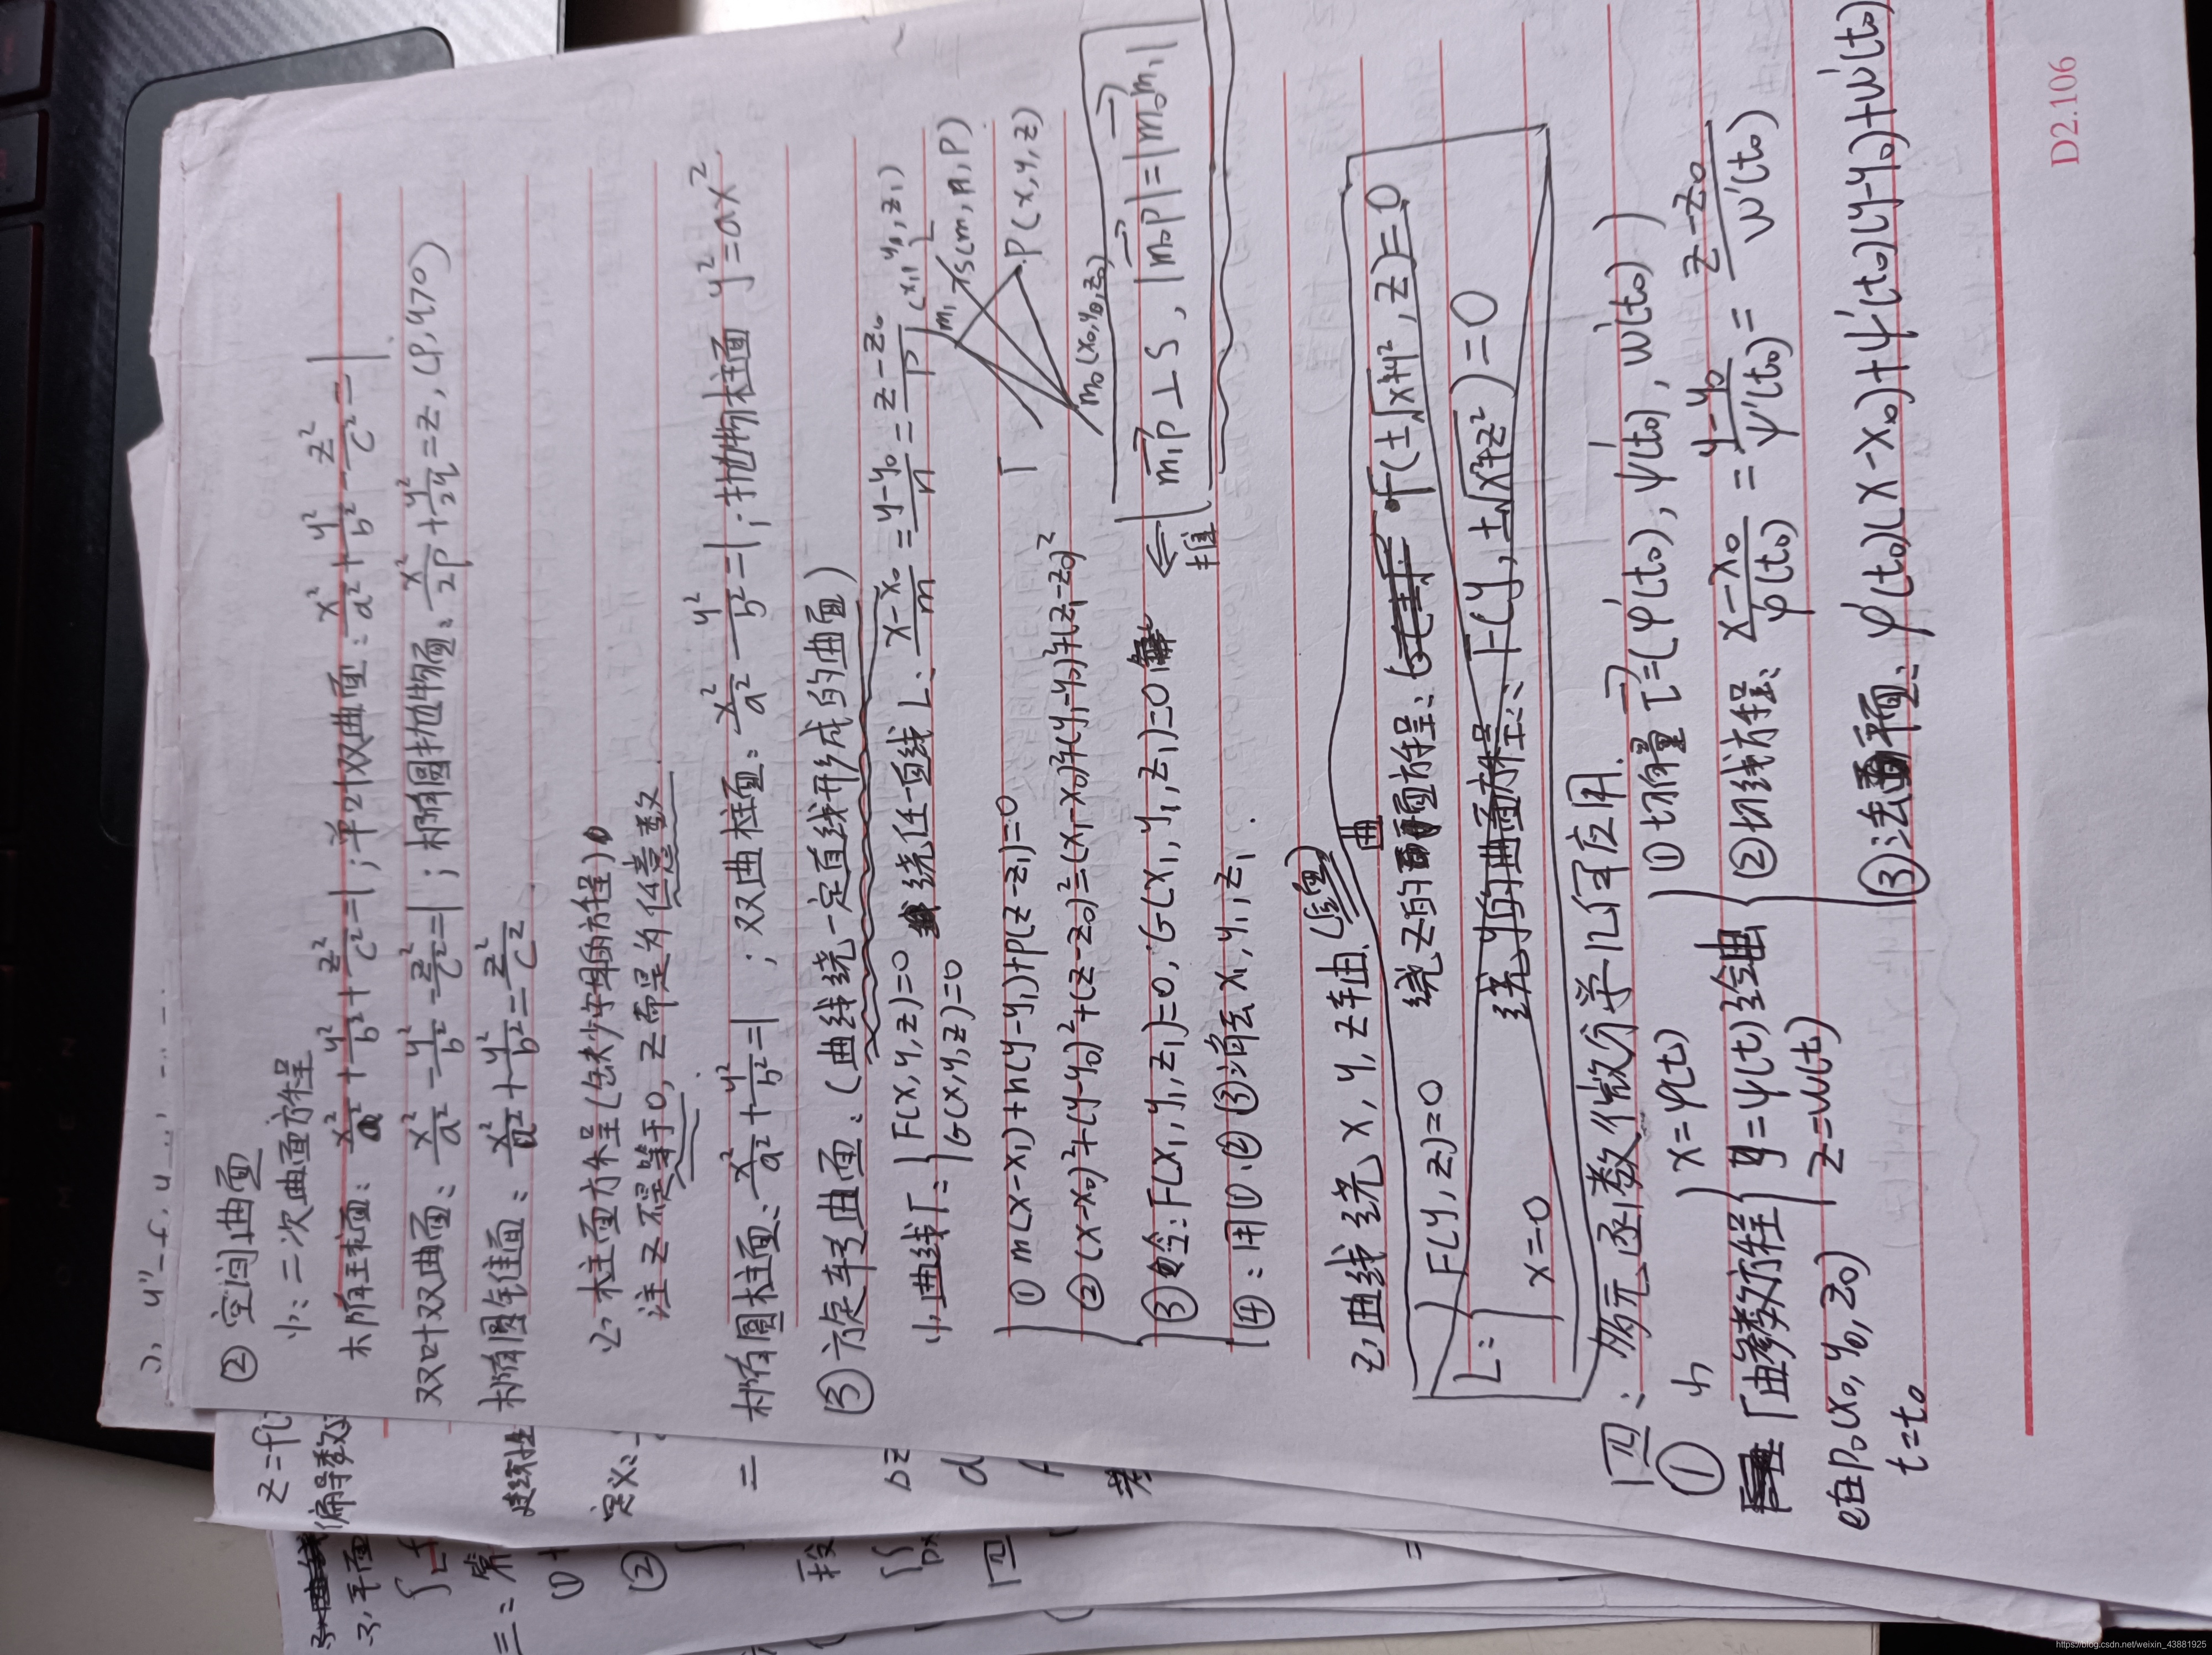 ② 空间曲面
1、：二次曲面方程
椭圆柱面：x²/a²+y²/b²+z²/c²=1；单叶双曲面：x²/a²+y²/b²-z²/c²=1
双叶双曲面：x²/a²-y²/b²-z²/c²=1；椭圆抛物面：x²/2p+y²/2q=z,(p,q>0)
椭圆锥面：x²/a²+y²/b²=z²/c²
2、柱面方程(缺少字母的方程)
注z不是等于0,z而是为任意数
椭圆柱面：x²/a²+y²/b²=1；双曲柱面：x²/a²-y²/b²=1；抛物柱面 y²=ax²
③ 旋转曲面：(曲线绕一定直线形成的曲面)
1、曲线Γ：{F(x,y,z)=0 G(x,y,z)=0 绕任一直线L：(x-x₀)/m=(y-y₀)/n=(z-z₀)/p
m₁(x₁,y₁,z₁)
S(m,n,p)
Γ
P(x,y,z)
m₀(x₀,y₀,z₀)
① m(x-x₁)+n(y-y₁)+p(z-z₁)=0
② (x-x₀)²+(y-y₀)²+(z-z₀)²=(x₁-x₀)²+(y₁-y₀)²+(z₁-z₀)²
③ 令：F(x₁,y₁,z₁)=0,G(x₁,y₁,z₁)=0
⇐推 m₁P⊥S,|m₀P|=|m₀m₁|
④：用①、②③消去x₁,y₁,z₁.
2,曲线绕x,y,z轴
L：{F(y,z)=0 x=0
绕z的曲面方程：F(±√x²+y²,z)=0
绕y的曲面方程：F(y,±√x²+z²)=0
四：多元函数微分学几何应用.
①
Γ由参数方程{x=φ(t) y=ψ(t) z=ω(t) 给出
在P₀(x₀,y₀,z₀)
t=t₀
①切向量τ=(φ'(t₀),ψ'(t₀),ω'(t₀))
②切线方程：(x-x₀)/φ'(t₀)=(y-y₀)/ψ'(t₀)=(z-z₀)/ω'(t₀)
③法平面：φ'(t₀)(x-x₀)+ψ'(t₀)(y-y₀)+ω'(t₀)
D2.106
z=f(
偏导数
连续性
定义：
https://blog.csdn.net/weixin_43881925